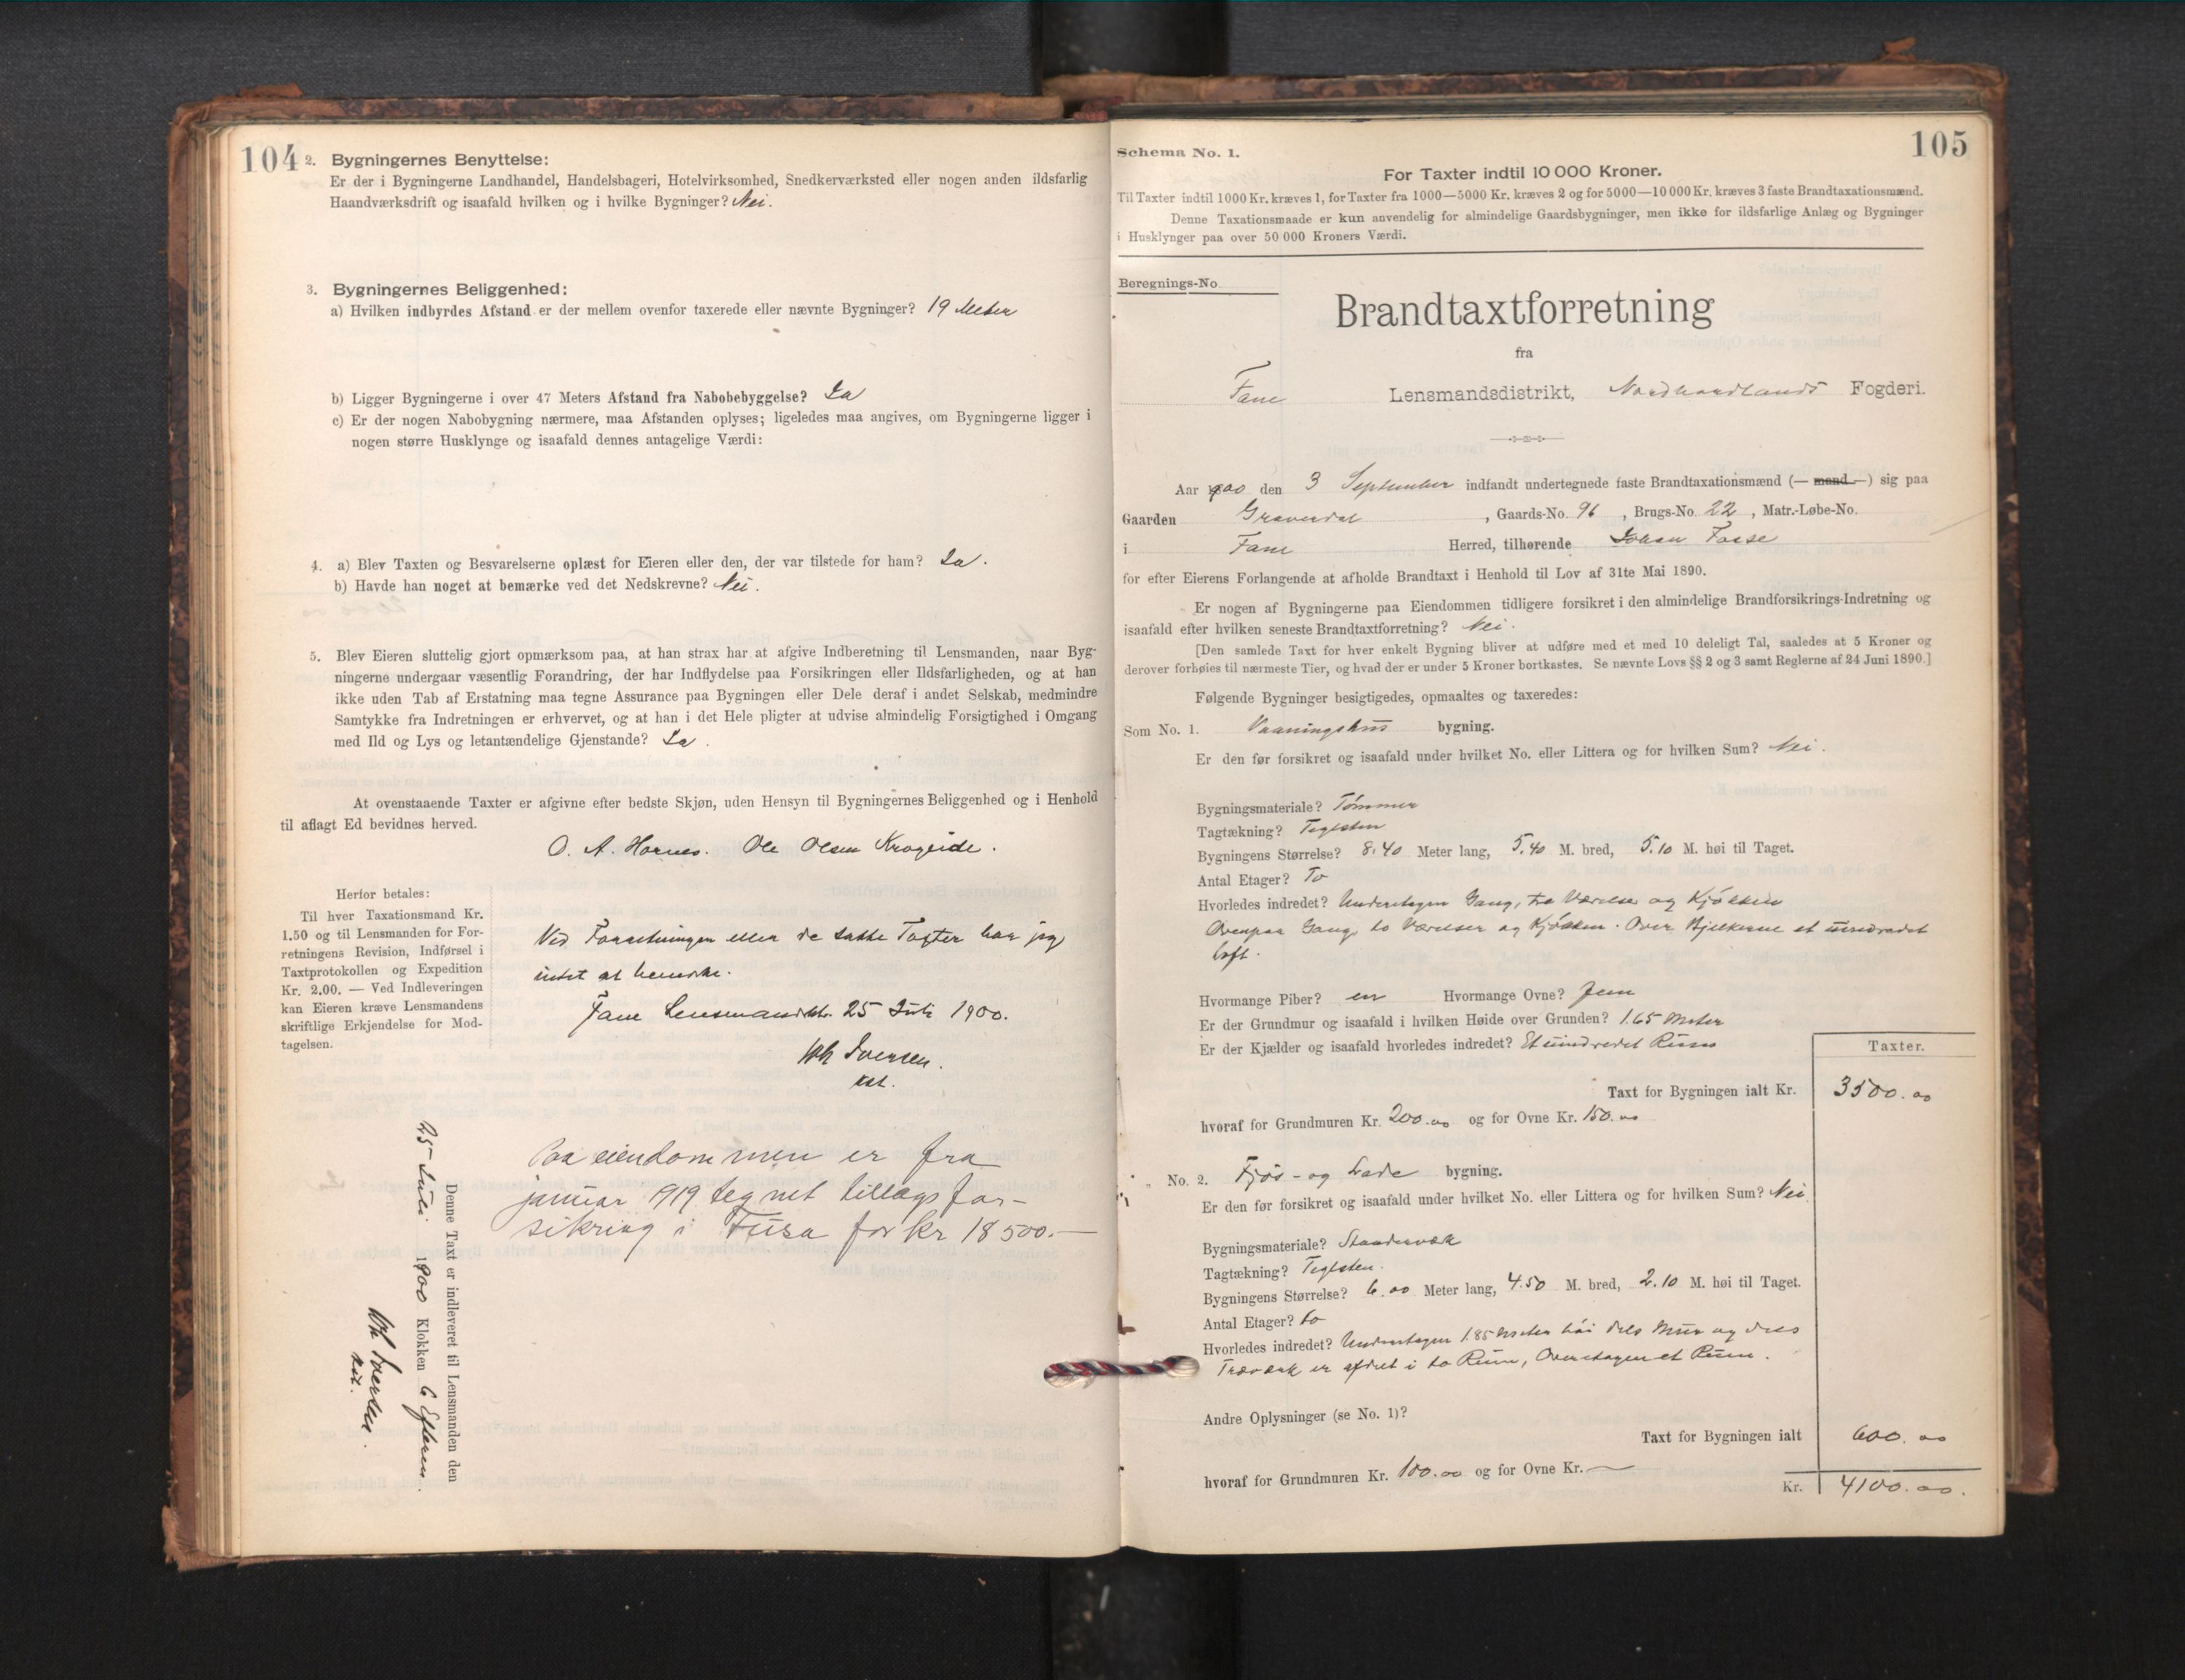 104
2. Bygningernes Benyttelse:
Er der i Bygningerne Landhandel, Handelsbageri, Hotelvirksomhed, Snedkerværksted eller nogen anden ildsfarlig
Haandværksdrift og isaafald hvilken og i hvilke Bygninger? Nei.
3. Bygningernes Beliggenhed:
a) Hvilken indbyrdes Afstand er der mellem ovenfor taxerede eller nævnte Bygninger? 19 Meter
b) Ligger Bygningerne i over 47 Meters Afstand fra Nabobebyggelse? Ja
c) Er der nogen Nabobygning nærmere, maa Afstanden oplyses; ligeledes maa angives, om Bygningerne ligger i
nogen større Husklynge og isaafald dennes antagelige Værdi:
4. a) Blev Taxten og Besvarelserne oplæst for Eieren eller den, der var tilstede for ham? Ja.
b) Havde han noget at bemærke ved det Nedskrevne? Nei.
5. Blev Eieren sluttelig gjort opmærksom paa, at han strax har at afgive Indberetning til Lensmanden, naar Byg-
ningerne undergaar væsentlig Forandring, der har Indflydelse paa Forsikringen eller Ildsfarligheden, og at han
ikke uden Tab af Erstatning maa tegne Assurance paa Bygningen eller Dele deraf i andet Selskab, medmindre
Samtykke fra Indretningen er erhvervet, og at han i det Hele pligter at udvise almindelig Forsigtighed i Omgang
med Ild og Lys og letantændelige Gjenstande? Ja.
At ovenstaaende Taxter er afgivne efter bedste Skjøn, uden Hensyn til Bygningernes Beliggenhed og i Henhold
til aflagt Ed bevidnes herved.
O. A. Hornes. Ole Olsen Krogeide.
Herfor betales:
Til hver Taxationsmand Kr.
1.50 og til Lensmanden for For-
retningens Revision, Indførsel i
Taxtprotokollen og Expedition
Kr. 2.00. — Ved Indleveringen
kan Eieren kræve Lensmandens
skriftlige Erkjendelse for Mod-
tagelsen.
Ved Forretningen eller de satte Taxter har jeg
intet at bemerke.
Fane Lensmandsktr. 25 Juli 1900.
Iversen.
kst.
Paa eiendommen er fra
januar 1919 tegnet tillægsfor-
sikring i Fusa for kr 18500.—
Denne Taxt er indleveret til Lensmanden den
25 Juli 1900 Klokken 6 Efterm.
Iversen.
kst.
105
Schema No. 1.
For Taxter indtil 10 000 Kroner.
Til Taxter indtil 1000 Kr. kræves 1, for Taxter fra 1000—5000 Kr. kræves 2 og for 5000—10 000 Kr. kræves 3 faste Brandtaxationsmænd.
Denne Taxationsmaade er kun anvendelig for almindelige Gaardsbygninger, men ikke for ildsfarlige Anlæg og Bygninger
i Husklynger paa over 50 000 Kroners Værdi.
Beregnings-No.
Brandtaxtforretning
fra
Fane Lensmandsdistrikt, Nordhordlands Fogderi.
Aar 1900 den 3 September indfandt undertegnede faste Brandtaxationsmænd (— mand —) sig paa
Gaarden Gravendal, Gaards-No. 96, Brugs-No. 22, Matr.-Løbe-No.
i Fane Herred, tilhørende Johan Fosse
for efter Eierens Forlangende at afholde Brandtaxt i Henhold til Lov af 31te Mai 1890.
Er nogen af Bygningerne paa Eiendommen tidligere forsikret i den almindelige Brandforsikrings-Indretning og
isaafald efter hvilken seneste Brandtaxtforretning? Nei.
[Den samlede Taxt for hver enkelt Bygning bliver at udføre med et med 10 deleligt Tal, saaledes at 5 Kroner og
derover forhøies til nærmeste Tier, og hvad der er under 5 Kroner bortkastes. Se nævnte Lovs §§ 2 og 3 samt Reglerne af 24 Juni 1890.]
Følgende Bygninger besigtigedes, opmaaltes og taxeredes:
Som No. 1. Vaaningshus bygning.
Er den før forsikret og isaafald under hvilket No. eller Littera og for hvilken Sum? Nei.
Bygningsmateriale? Tømmer
Tagtækning? Teglsten
Bygningens Størrelse? 8.40 Meter lang, 5.40 M. bred, 5.10 M. høi til Taget.
Antal Etager? To
Hvorledes indredet? Underetagen Gang, tre Værelser og Kjøkken
Ovenpaa Gang, to Værelser og Kjøkken. Over Bjelkerne et uindredet
loft.
Hvormange Piber? en Hvormange Ovne? fem
Er der Grundmur og isaafald i hvilken Høide over Grunden? 1.65 Meter
Er der Kjælder og isaafald hvorledes indredet? Et uindredet Rum
Taxter.
Taxt for Bygningen ialt Kr. 3500.00
hvoraf for Grundmuren Kr. 200.00 og for Ovne Kr. 150.00
No. 2. Fjøs- og Lade bygning.
Er den før forsikret og isaafald under hvilket No. eller Littera og for hvilken Sum? Nei
Bygningsmateriale? Standerværk
Tagtækning? Teglsten.
Bygningens Størrelse? 6.00 Meter lang, 4.50 M. bred, 2.10 M. høi til Taget.
Antal Etager? to
Hvorledes indredet? Underetagen 1.85 Meter høi dels Mur og dels
Træværk er afdelt i to Rum, Overetagen et Rum.
Andre Oplysninger (se No. 1)?
Taxt for Bygningen ialt 600.00
hvoraf for Grundmuren Kr. 100.00 og for Ovne Kr. —
Kr. 4100.00.